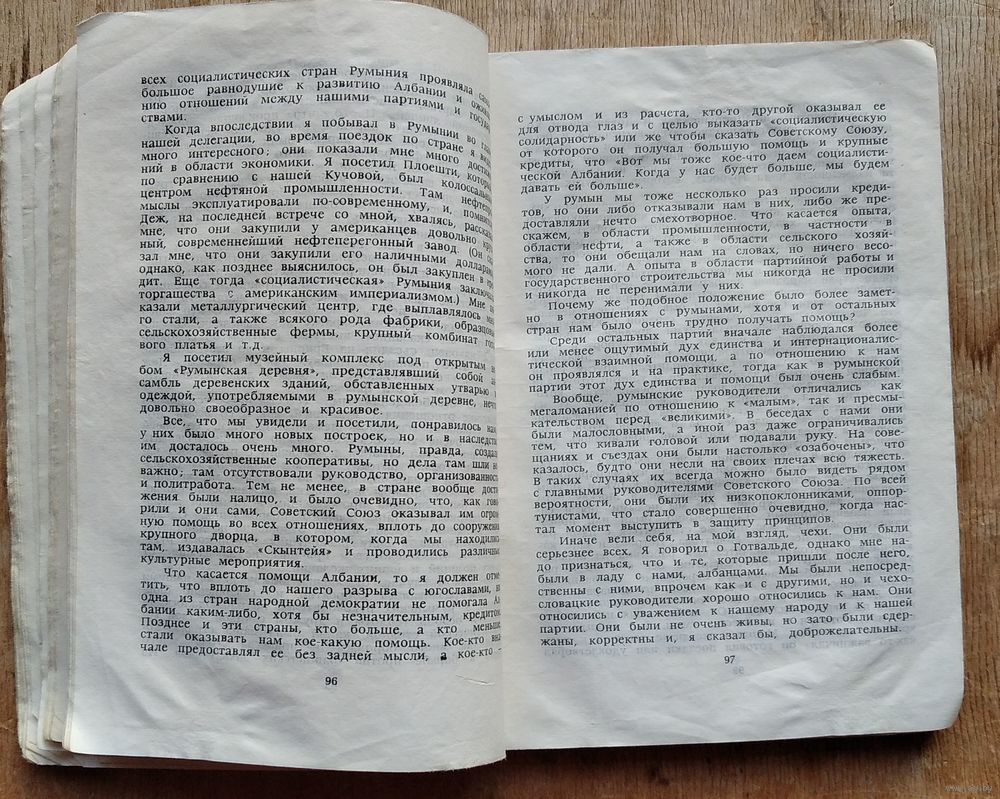 всех социалистических стран Румыния проявляла
большое равнодушие к развитию Албании и
нию отношений между нашими партиями и
ствами.
Когда впоследствии я побывал в Румынии во
нашей делегации, во время поездок по стране я
много интересного; они показали мне много
ний в области экономики. Я посетил Плоешти,
по сравнению с нашей Кучовой, был
центром нефтяной промышленности. Там
мыслы эксплуатировали по-современному, и,
Деж, на последней встрече со мной, хвалясь,
мне, что они закупили у американцев довольно
ный, современнейший нефтеперегонный завод. (Он
зал мне, что они закупили его наличными
однако, как позднее выяснилось, он был закуплен в
дит. Еще тогда «социалистическая» Румыния
торгашества с американским империализмом.) Мне
казали металлургический центр, где выплавлялось
го стали, а также всякого рода фабрики,
сельскохозяйственные фермы, крупный комбинат
вого платья и т.д.
Я посетил музейный комплекс под открытым
бом «Румынская деревня», представлявший собой
самбль деревенских зданий, обставленных утварью
одеждой, употребляемыми в румынской деревне,
довольно своеобразное и красивое.
Все, что мы увидели и посетили, понравилось
у них было много новых построек, но и в
им досталось очень много. Румыны, правда,
сельскохозяйственные кооперативы, но дела там шли
важно; там отсутствовали руководство,
и политработа. Тем не менее, в стране вообще
жения были налицо, и было очевидно, что, как
рили и они сами, Советский Союз оказывал им
ную помощь во всех отношениях, вплоть до
крупного дворца, в котором, когда мы находились
там, издавалась «Скынтейя» и проводились различные
культурные мероприятия.
Что касается помощи Албании, то я должен
тить, что вплоть до нашего разрыва с югославами,
одна из стран народной демократии не помогала
бании каким-либо, хотя бы незначительным,
Позднее и эти страны, кто больше, а кто
стали оказывать нам кое-какую помощь. Кое-кто
чале предоставлял ее без задней мысли, а кое-кто —
96
с умыслом и из расчета, кто-то другой оказывал ее
для отвода глаз и с целью выказать «социалистическую
солидарность» или же чтобы сказать Советскому Союзу,
от которого он получал большую помощь и крупные
кредиты, что «Вот мы тоже кое-что даем социалисти-
ческой Албании. Когда у нас будет больше, мы будем
давать ей больше».
У румын мы тоже несколько раз просили креди-
тов, но они либо отказывали нам в них, либо же пре-
доставляли нечто смехотворное. Что касается опыта,
скажем, в области промышленности, в частности в
области нефти, а также в области сельского хозяй-
ства, то они обещали нам на словах, но ничего весо-
мого не дали. А опыта в области партийной работы и
государственного строительства мы никогда не просили
и никогда не перенимали у них.
Почему же подобное положение было более замет-
но в отношениях с румынами, хотя и от остальных
стран нам было очень трудно получать помощь?
Среди остальных партий вначале наблюдался более
или менее ощутимый дух единства и интернационалис-
тической взаимной помощи, а по отношению к нам
он проявлялся и на практике, тогда как в румынской
партии этот дух единства и помощи был очень слабым.
Вообще, румынские руководители отличались как
мегаломанией по отношению к «малым», так и пресмы-
кательством перед «великими». В беседах с нами они
были малословными, а иной раз даже ограничивались
тем, что кивали головой или подавали руку. На сове-
щаниях и съездах они были настолько «озабочены», что
казалось, будто они несли на своих плечах всю тяжесть.
В таких случаях их всегда можно было видеть рядом
с главными руководителями Советского Союза. По всей
вероятности, они были их низкопоклонниками, оппор-
тунистами, что стало совершенно очевидно, когда нас-
тал момент выступить в защиту принципов.
Иначе вели себя, на мой взгляд, чехи. Они были
серьезнее всех. Я говорил о Готвальде, однако мне на-
до признаться, что и те, которые пришли после него,
были в ладу с нами, албанцами. Мы были непосред-
ственны с ними, впрочем как и с другими, но и чехо-
словацкие руководители хорошо относились к нам. Они
относились с уважением к нашему народу и к нашей
партии. Они были не очень живы, но зато были сдер-
жаны, корректны и, я сказал бы, доброжелательны.
97